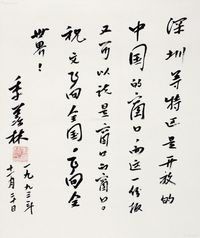 深圳等特区是开放的
中国的窗口，而这一份报
又可以说是窗口的窗口。
祝它飞向全国，飞向全
世界！
季羡林
一九九三年
月 日